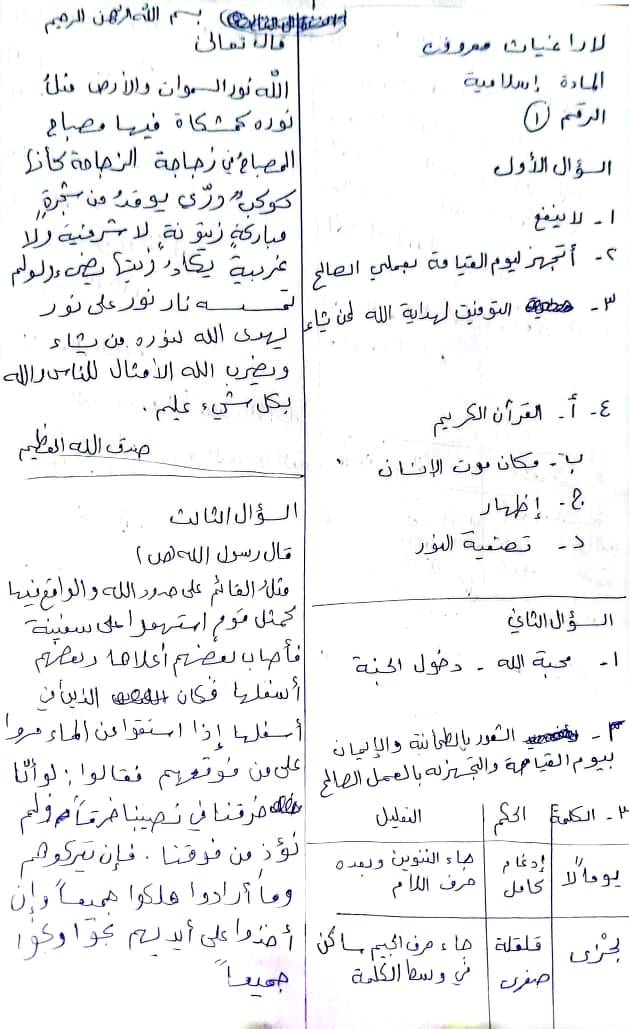 لارا غياث معروف
المادة إسلامية
الرقم ١
السؤال الأول
١- لا ينفع
٢- أتجهز ليوم القيامة بعملي الصالح
٣- التوفيق لهداية الله لمن يشاء
٤- أ- القرآن الكريم
ب- مكان موت الإنسان
ج- إظهار
د- تصفية البذور
السؤال الثاني
١- محبة الله - دخول الجنة
٢- الشعور بالطمأنينة والإيمان
بيوم القيامة والتجهيز له بالعمل الصالح
٣- الكلمة الحكم التعليل
يوماً لا إدغام كامل جاء التنوين وبعده حرف اللام
يجزى قلقلة صغرى جاء حرف الجيم ساكن في وسط الكلمة
بسم الله الرحمن الرحيم
قال تعالى
الله نور السموات والأرض مثل
نوره كمشكاة فيها مصباح
المصباح في زجاجة الزجاجة كأنها
كوكب درّي يوقد من شجرةٍ
مباركةٍ زيتونةٍ لا شرقية ولا
غربية يكاد زيتها يضيء ولو لم
تمسسه نار نور على نور
يهدي الله لنوره من يشاء
ويضرب الله الأمثال للناس والله
بكل شيء عليم.
صدق الله العظيم
السؤال الثالث
قال رسول الله (ص)
مثل القائم على حدود الله والواقع فيها
كمثل قوم استهموا على سفينة
فأصاب بعضهم أعلاها وبعضهم
أسفلها فكان الذين في
أسفلها إذا استقوا من الماء مروا
على من فوقهم فقالوا: لو أنّا
خرقنا في نصيبنا خرقاً ولم
نؤذ من فوقنا. فإن يتركوهم
وما أرادوا هلكوا جميعاً وإن
أخذوا على أيديهم نجوا ونجوا
جميعاً